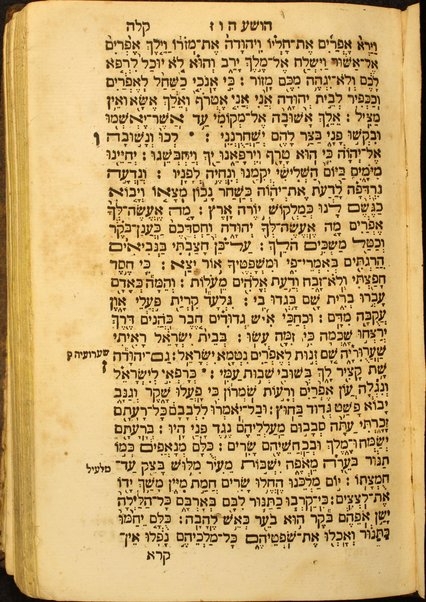 הושע ה ו ז קלה
וַיַּרְא אֶפְרַיִם אֶת־חָלְיוֹ וִיהוּדָה אֶת־מְזֹרוֹ וַיֵּלֶךְ אֶפְרַיִם
אֶל־אַשּׁוּר וַיִּשְׁלַח אֶל־מֶלֶךְ יָרֵב וְהוּא לֹא יוּכַל לִרְפֹּא
לָכֶם וְלֹא־יִגְהֶה מִכֶּם מָזוֹר: כִּי אָנֹכִי כַשַּׁחַל לְאֶפְרַיִם
וְכַכְּפִיר לְבֵית יְהוּדָה אֲנִי אֲנִי אֶטְרֹף וְאֵלֵךְ אֶשָּׂא וְאֵין
מַצִּיל: אֵלֵךְ אָשׁוּבָה אֶל־מְקוֹמִי עַד אֲשֶׁר־יֶאְשְׁמוּ
וּבִקְשׁוּ פָנָי בַּצַּר לָהֶם יְשַׁחֲרֻנְנִי: לְכוּ וְנָשׁוּבָה ו
אֶל־יְהוָֹה כִּי הוּא טָרָף וְיִרְפָּאֵנוּ יַךְ וְיַחְבְּשֵׁנוּ: יְחַיֵּינוּ
מִיָּמַיִם בַּיּוֹם הַשְּׁלִישִׁי יְקִמֵנוּ וְנִחְיֶה לְפָנָיו: וְנֵדְעָה
נִרְדְּפָה לָדַעַת אֶת־יְהוָֹה כְּשַׁחַר נָכוֹן מֹצָאוֹ וְיָבוֹא
כַגֶּשֶׁם לָנוּ כְּמַלְקוֹשׁ יוֹרֶה אָרֶץ: מָה אֶעֱשֶׂה־לְּךָ
אֶפְרַיִם מָה אֶעֱשֶׂה־לְּךָ יְהוּדָה וְחַסְדְּכֶם כַּעֲנַן־בֹּקֶר
וְכַטַּל מַשְׁכִּים הֹלֵךְ: עַל־כֵּן חָצַבְתִּי בַּנְּבִיאִים
הֲרַגְתִּים בְּאִמְרֵי־פִי וּמִשְׁפָּטֶיךָ אוֹר יֵצֵא: כִּי חֶסֶד
חָפַצְתִּי וְלֹא־זָבַח וְדַעַת אֱלֹהִים מֵעֹלוֹת: וְהֵמָּה כְּאָדָם
עָבְרוּ בְרִית שָׁם בָּגְדוּ בִי: גִּלְעָד קִרְיַת פֹּעֲלֵי אָוֶן
עֲקֻבָּה מִדָּם: וּכְחַכֵּי אִישׁ גְּדוּדִים חֶבֶר כֹּהֲנִים דֶּרֶךְ
יְרַצְּחוּ שֶׁכְמָה כִּי זִמָּה עָשׂוּ: בְּבֵית יִשְׂרָאֵל רָאִיתִי
שַׁעֲרוּרִיָּה שָׁם זְנוּת לְאֶפְרַיִם נִטְמָא יִשְׂרָאֵל: גַּם־יְהוּדָה שערוריה ק
שָׁת קָצִיר לָךְ בְּשׁוּבִי שְׁבוּת עַמִּי: כְּרָפְאִי לְיִשְׂרָאֵל
וְנִגְלָה עֲוֹן אֶפְרַיִם וְרָעוֹת שֹׁמְרוֹן כִּי פָעֲלוּ שָׁקֶר וְגַנָּב
יָבוֹא פָּשַׁט גְּדוּד בַּחוּץ: וּבַל־יֹאמְרוּ לִלְבָבָם כָּל־רָעָתָם
זָכָרְתִּי עַתָּה סְבָבוּם מַעַלְלֵיהֶם נֶגֶד פָּנַי הָיוּ: בְּרָעָתָם
יְשַׂמְּחוּ מֶלֶךְ וּבְכַחֲשֵׁיהֶם שָׂרִים: כֻּלָּם מְנָאֲפִים כְּמוֹ
תַנּוּר בֹּעֵרָה מֵאֹפֶה יִשְׁבּוֹת מֵעִיר מִלּוּשׁ בָּצֵק עַד־ מלעיל
חֻמְצָתוֹ: יוֹם מַלְכֵּנוּ הֶחֱלוּ שָׂרִים חֲמַת מִיָּיִן מָשַׁךְ יָדוֹ
אֶת־לֹצְצִים: כִּי־קֵרְבוּ כַתַּנּוּר לִבָּם בְּאָרְבָּם כָּל־הַלַּיְלָה
יָשֵׁן אֹפֵהֶם בֹּקֶר הוּא בֹעֵר כְּאֵשׁ לֶהָבָה: כֻּלָּם יֵחַמּוּ
כַּתַּנּוּר וְאָכְלוּ אֶת־שֹׁפְטֵיהֶם כָּל־מַלְכֵיהֶם נָפָלוּ אֵין־
קרא